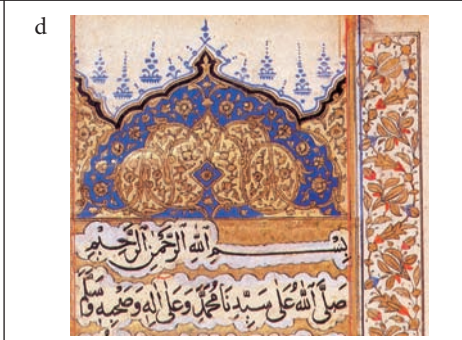 d
بِسْمِ اللهِ الرَّحْمٰنِ الرَّحِيْمِ
صَلَّى اللهُ عَلٰى سَيِّدِنَا مُحَمَّدٍ وَعَلٰى اٰلِهِ وَصَحْبِهِ وَسَلَّمَ